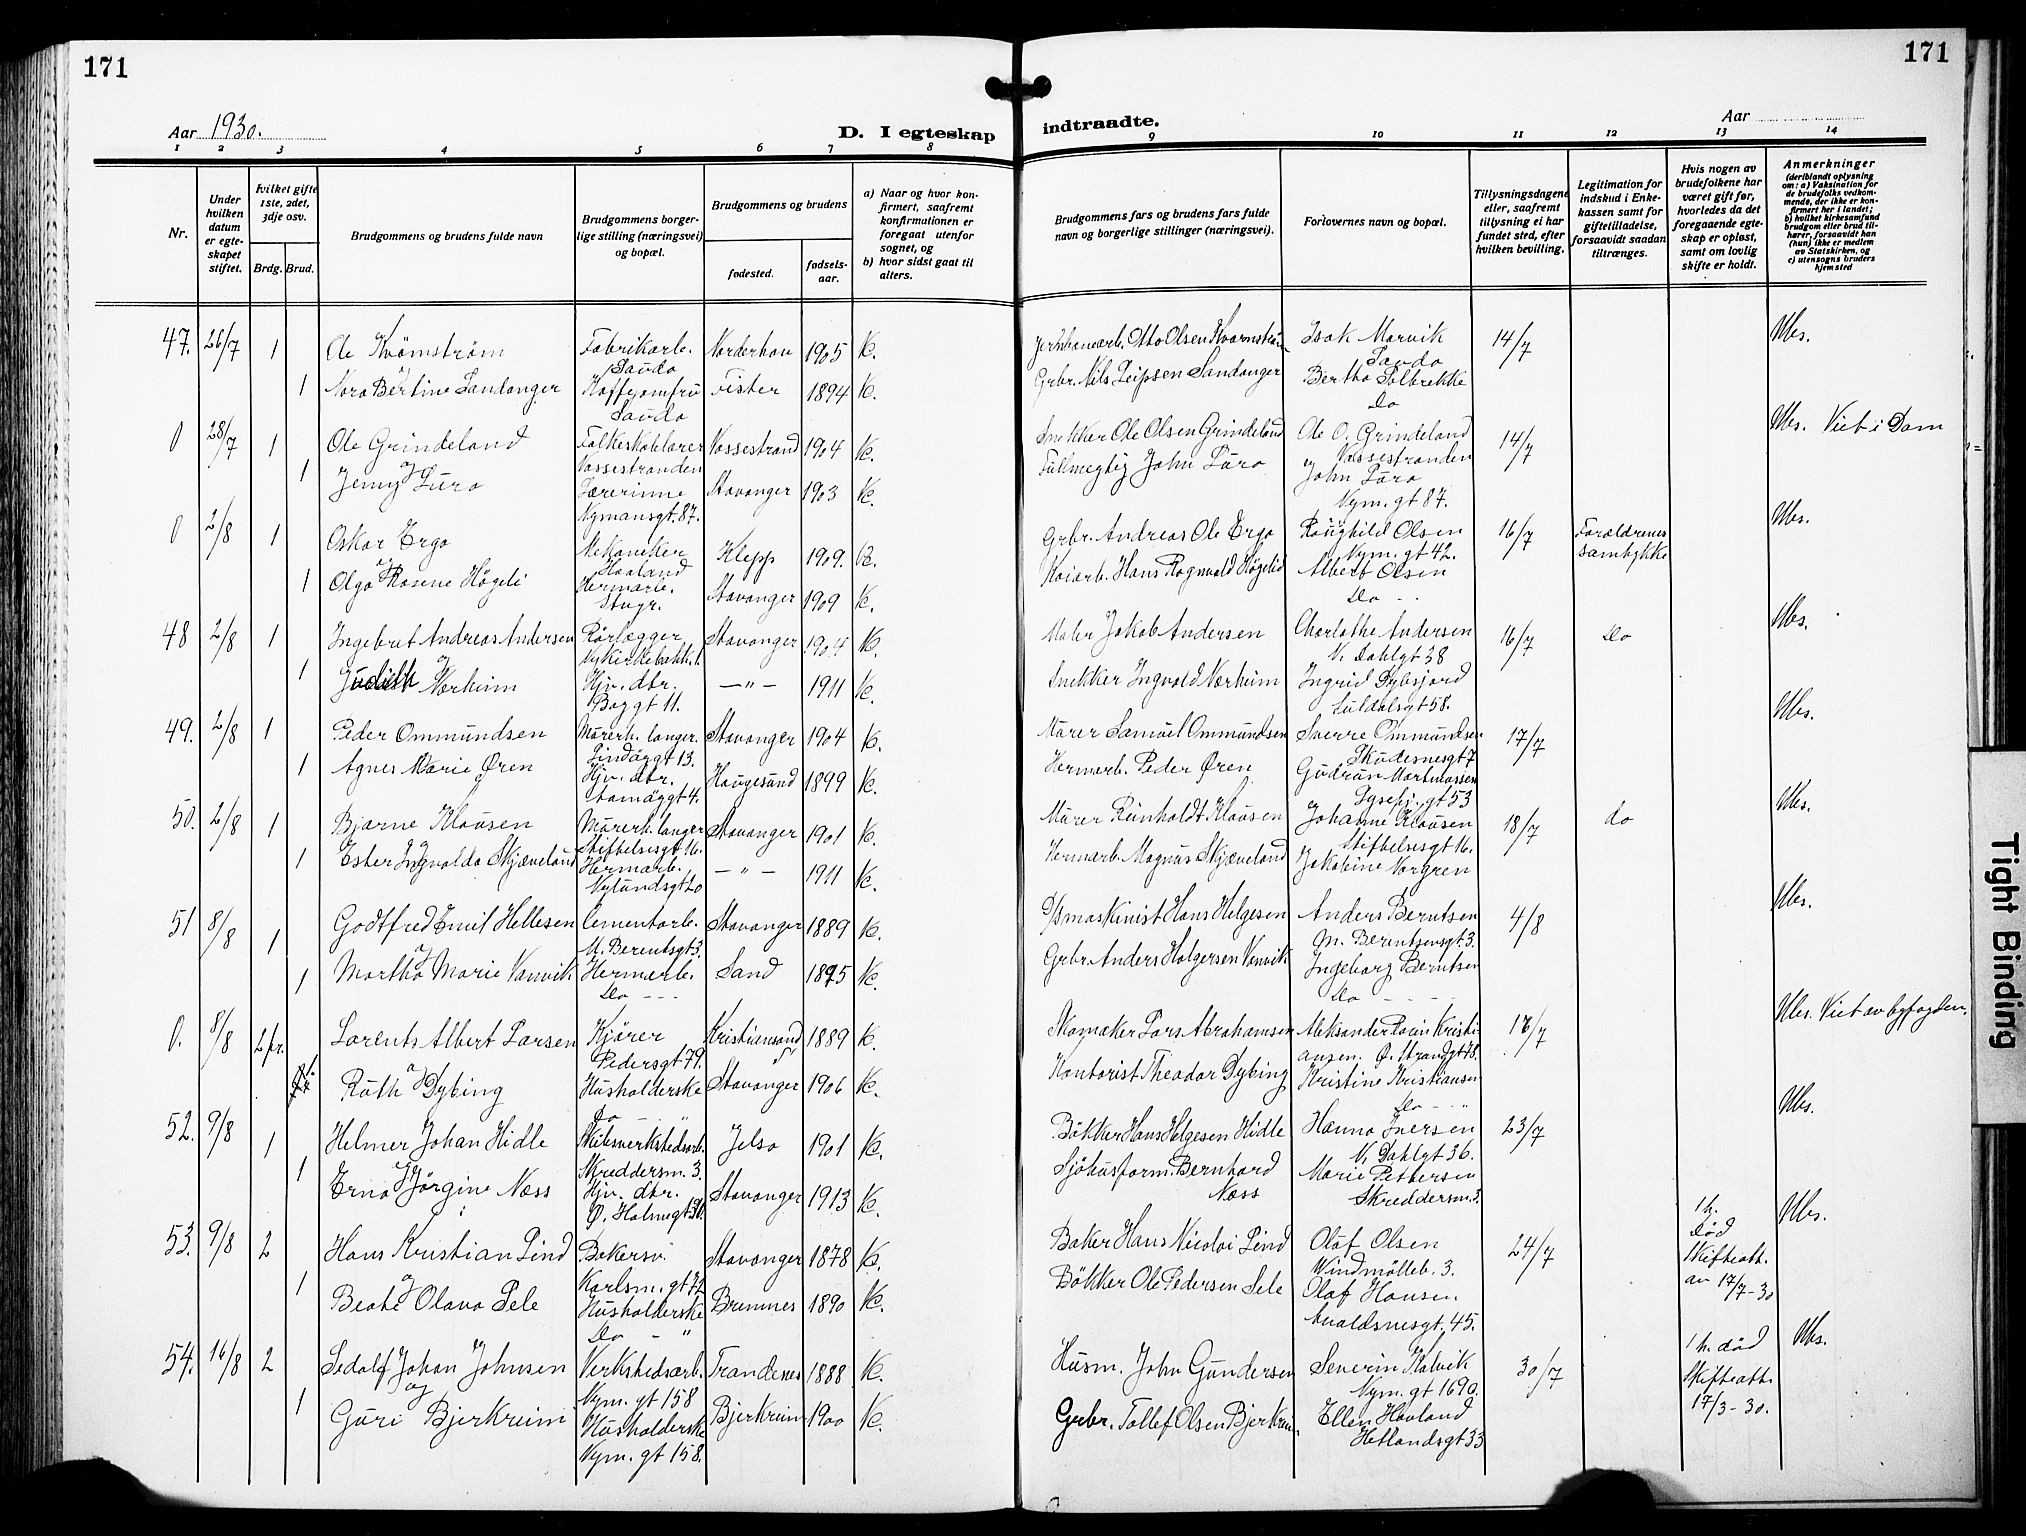 171
171
Aar 1930.
D. I egteskap
indtraadte.
Aar
1 2 3 4 5 6 7 8
9 10 11 12 13 14
Nr.
Under hvilken datum er egteskapet stiftet.
hvilket gifte 1ste, 2det, 3dje osv.
Brdg. Brud.
Brudgommens og brudens fulde navn
Brudgommens borgerlige stilling (næringsvei) og bopæl.
Brudgommens og brudens
fødested.
fødselsaar.
a) Naar og hvor konfirmert, saafremt konfirmationen er foregaat utenfor sognet, og
b) hvor sidst gaat til alters.
Brudgommens fars og brudens fars fulde navn og borgerlige stillinger (næringsvei).
Forlovernes navn og bopæl.
Tillysningsdagene eller, saafremt tillysning ei har fundet sted, efter hvilken bevilling.
Legitimation for indskud i Enkekassen samt for giftetilladelse, forsaavidt saadan tiltrænges.
Hvis nogen av brudefolkene har været gift før, hvorledes da det foregaaende egteskap er opløst, samt om lovlig skifte er holdt.
Anmerkninger
(deriblandt oplysning om: a) Vaksination for de brudefolks vedkommende, der ikke er konfirmert her i landet; b) hvilket kirkesamfund brudgom eller brud tilhører, forsaavidt han (hun) ikke er medlem av Statskirken, og c) utensogns bruders hjemsted
47. 26/7 1 Ole Kvömström Fabrikarb. Sauda Norderhov 1905 K.
Otto Olsen Isak Marvik Sauda 14/7
og
1 Nora Bertine Sandanger Kaffejomfru Sauda Fister 1894 K.
Grbr. Nils Leipsen Sandanger Bertha Solbrekke Do
0 28/7 1 Ole Grindeland Folkeskolelærer Vossestranden Vossestrand 1904 K.
Snekker Ole Olsen Grindeland Ole O. Grindeland Vossestranden 14/7 Viet i Dom
og
1 Jenny Lura Lærerinne Nymansgt. 87. Stavanger 1903 K.
Fullmegtig John Lura John Lura Nym. gt 87.
0 2/8 1 Oskar Ergo Mekaniker Haaland Klepp 1909. K.
Grbr. Andreas Ole Ergo Raughild Olsen Nym. gt 42. 16/7 Forældrenes samtykke
og
1 Olga Rosene Högeli Hermarb. Stugr. Stavanger 1909 K.
Kaiarb. Hans Rognvald Högelid Albert Olsen Do
48 2/8 1 Ingebret Andreas Andersen Rörlægger Nykirkebakk. 1. Stavanger 1904 K.
Maler Jakob Andersen Charlothe Andersen V. Dahlgt 38 16/7 Do
og
1 Judith Nærheim Hjv. dtr. Boggt 11. — " — 1911 K.
Snekker Ingvald Nærheim Ingrid Dybsjord Suldalsgt 58.
49. 2/8 1 Peder Ommundsen Murerh. langer. Lindöygt 13. Stavanger 1904 K.
Murer Samuel Ommundsen Sverre Ommundsen Skudesnesgt 7 17/7
og
1 Agnes Marie Øren Hjv. dtr. Haugesund 1899 K.
Hermarb. Peder Øren Gudrun Lysefj. gt 53
50. 2/8 1 Bjarne Klausen Murerh. langer Stiftelsesgt 16. Stavanger 1901 K.
Murer Reinholdt Klausen Johanne Klausen Stiftelsesgt 16. 18/7 do
og
1 Ester Ingvalda Skjæveland Hermarb. Nylundsgt 20 — " — 1911 K.
Hermarb. Magnus Skjæveland Jakobine Norgren
51 8/8 1 Godtfred Emil Hellesen Cementarb. M. Berentsgt 3. Stavanger 1889 K.
D/S maskinist Hans Helgesen Anders Berntsen M. Berentsensgt. 3. 4/8
og
1 Martha Marie Vanvik Hermarb. Do Sand 1895 K.
Grbr. Anders Holgersen Vanvik Ingeborg Berntsen Do
0. 8/8 2 fr. Lorents Albert Larsen Kjörer Pedersgt 79. Kristiansand S 1889 K.
Skomaker Lars Abrahamsen Aleksander Kristiansen. Ø. Strandgt 78. Viet av byfogden.
og
Ruth Dybing Husholderske Do Stavanger 1906 K.
Kontorist Theodor Dybing Kristine Kristiansen Do
52. 9/8 1 Helmer Johan Hidle Skibsverkstedsarb. Skreddersm. 3. Jelsa 1901 K.
Bökker Hans Helgesen Hidle Hanna Iversen V. Dahlgt 36. 23/7
og
1 Erna Jörgine Næss Hjv. dtr. Stavanger 1913 K.
Sjöhusform. Bernhard Næss Marie Pettersen Skreddersm. 3.
53. 9/8 2 Hans Kristian Lind Bakersv. Karlsm. gt 72 Stavanger 1878 K.
Baker Hans Nicolai Lind Olaf Olsen Windmölleb. 3. 24/7 1 h. Död Skifteatt. av 17/7-30
og
1 Beate Olava Sele Husholderske Do Bremnes 1890 K.
Bökker Ole Pedersen Sele Olaf Hansen Avaldsnesgt. 45.
54. 16/8 2 Sedolf Johan Johnsen Verkstedsarb. Nym. gt 158 Trandenes 1888 K.
Husm. John Gundersen Severin Kalvik Nym. gt 30/7 1 h. död Skifteatt. 17/3-30.
og
1 Guri Bjerkreim Husholderske Nym. gt 158. Bjerkreim 1900 K.
Grbr. Tollef Olsen Bjerkreim. Ellen Havland Hetlandsgt 33
Tight Binding